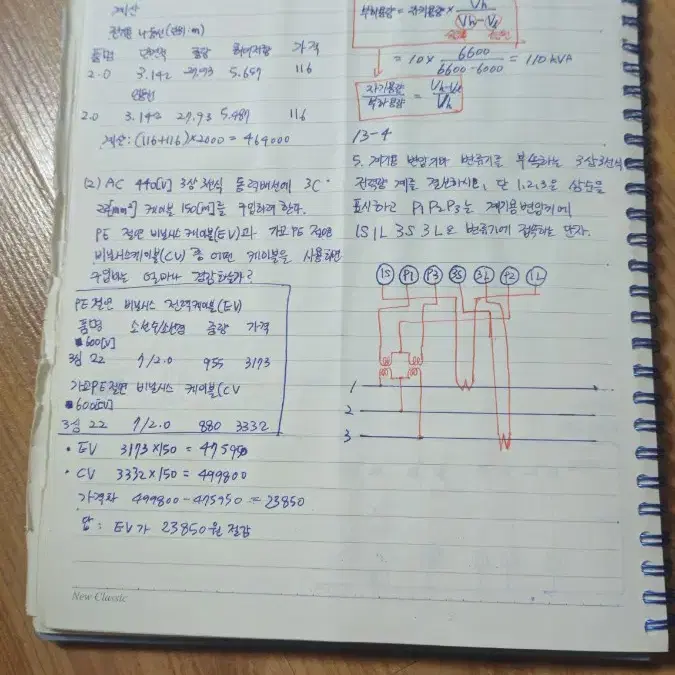 계산
품명 단면적 중량 가격
2.0 3.142 27.93 5.657 116
2.0 3.142 27.93 5.487 116
계산:(116+116)×2000 = 464000
(2) AC 440[V] 3상 3선식 동력배선에 3C
22[mm²] 케이블 150[m]를 구입하려 한다.
PE 절연 비닐시스 케이블(EV)과 가교 PE 절연
비닐시스케이블(CV) 중 어떤 케이블을 사용하면
얼마나 절감
PE 절연 비닐시스 전력케이블(EV)
품명 소선수/소선경 중량 가격
600[V]
3심 22 7/2.0 955 3173
가교PE절연 비닐시스 케이블(CV
600[V]
3심 22 7/2.0 880 3332
• EV 3173×150 = 475950
• CV 3332×150 = 499800
가격차 499800-475950 = 23850
답: EV가 23850원 절감
New Classic
부하용량 = 자기용량 × Vh
Vh-Vl
= 10 × 6600 / 6600-6000 = 110 kVA
자기용량 / 부하용량 = Vh-Vl / Vh
13-4
5. 계기용 변압기와 변류기를 부속하는 3상3선식
전력량 계를 결선하시오, 단 1,2,3은 상순을
표시하고 P1 P2 P3는 계기용변압기에
1S 1L 3S 3L은 변류기에 접속하는 단자.
1S P1 P3 3S 3L P2 1L
1
2
3